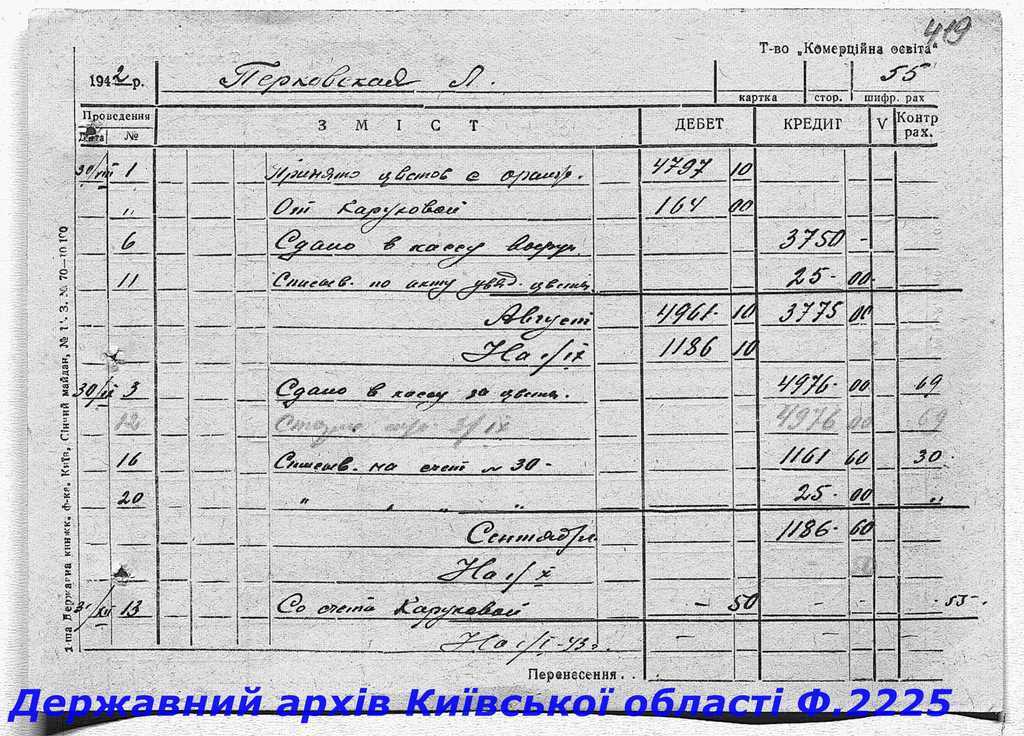 419
Т-во „Комерційна освіта"
1942 р. Перковская Л. 55
картка стор. шифр. рах
Проведення
Дата № ЗМІСТ ДЕБЕТ КРЕДИТ V Контр рах.
30/VIII 1 Принято цветов с 4797 10
" От Каруковой 164 00
6 Сдано в кассу 3750 -
11 Списыв. по акту цветы 25 - 00
Август 4961 - 10 3775 00
На 1/IX 1186 10
30/IX 3 Сдано в кассу за цветы. 4976 - 00 69
12 Сторно 3/IX 4976 00 69
16 Списыв. на счет № 30 - 1161 60 30
20 " " " 25 - 00 "
Сентябрь 1186 - 60
На 1/X
31/XII 13 Со счета Каруковой - 50 - - - 55 -
На 1/I - 43 г. -
Перенесення . .
1-ша Державна книжк. ф-ка. Київ, Сінний майдан, № 1'. З. № 70—10 100
Державний архів Київської області Ф.2225